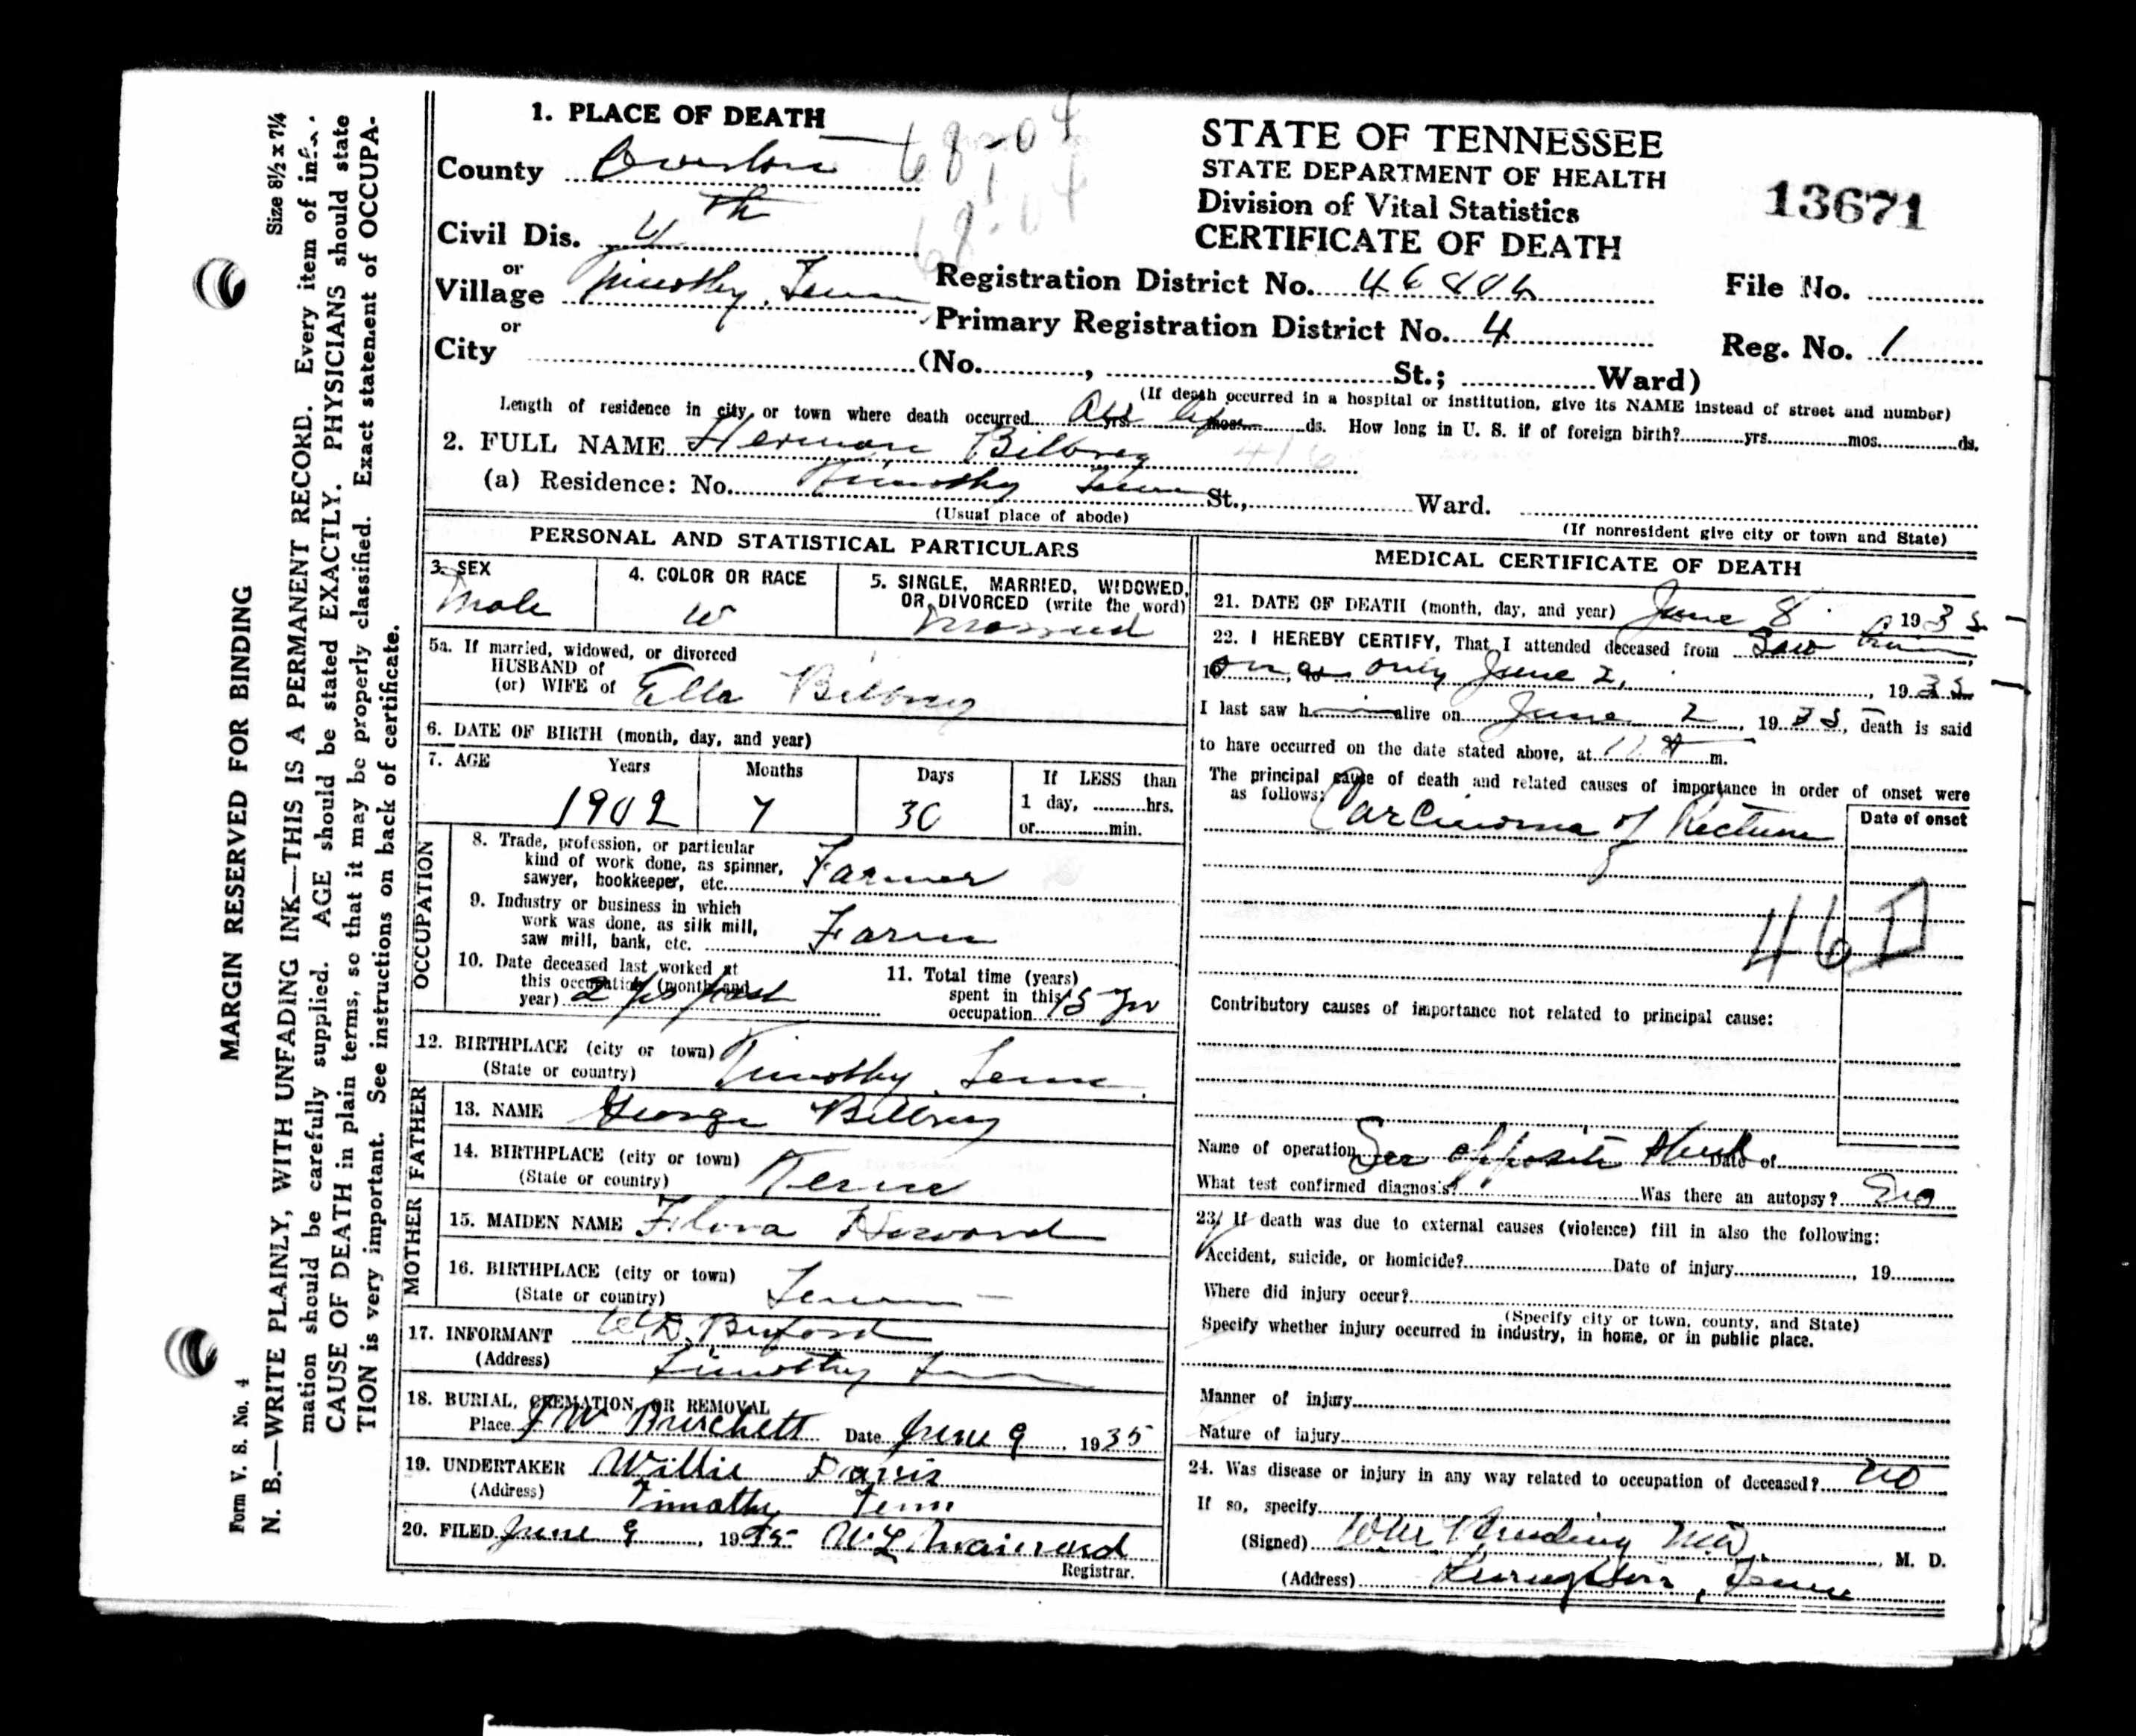 1. PLACE OF DEATH
County Overton
Civil Dis. 4th
or
Village Timothy, Tenn
or
City (No. , St.; Ward)
STATE OF TENNESSEE
STATE DEPARTMENT OF HEALTH
Division of Vital Statistics
CERTIFICATE OF DEATH
13671
68-04
68-04
Registration District No.
Primary Registration District No. 4
File No.
Reg. No. 1
(If death occurred in a hospital or institution, give its NAME instead of street and number)
Length of residence in city or town where death occurred All life yrs. mos. ds. How long in U. S. if of foreign birth? yrs. mos. ds.
2. FULL NAME Herman Bilbrey 416
(a) Residence: No. Timothy Tenn St., Ward.
(Usual place of abode)
(If nonresident give city or town and State)
PERSONAL AND STATISTICAL PARTICULARS
3. SEX
Male
4. COLOR OR RACE
W
5. SINGLE, MARRIED, WIDOWED, OR DIVORCED (write the word)
Married
5a. If married, widowed, or divorced
HUSBAND of
(or) WIFE of Ella Bilbrey
6. DATE OF BIRTH (month, day, and year)
7. AGE
Years
Months
Days
If LESS than
1902 7 30
1 day, hrs.
or min.
OCCUPATION
8. Trade, profession, or particular
kind of work done, as spinner,
sawyer, bookkeeper, etc. Farmer
9. Industry or business in which
work was done, as silk mill,
saw mill, bank, etc. Farm
10. Date deceased last worked at
this occupation (month and
year) 2 yrs past
11. Total time (years)
spent in this
occupation 15 yr
12. BIRTHPLACE (city or town)
(State or country) Timothy Tenn
FATHER
13. NAME George Bilbrey
14. BIRTHPLACE (city or town)
(State or country) Tenn
MOTHER
15. MAIDEN NAME Flora
16. BIRTHPLACE (city or town)
(State or country) Tenn
17. INFORMANT W.D. Buford
(Address) Timothy Tenn
18. BURIAL, CREMATION, OR REMOVAL
Place J W Burchett Date June 9, 1935
19. UNDERTAKER Willie Davis
(Address) Timothy Tenn
20. FILED June 9, 1935 W L
Registrar.
MEDICAL CERTIFICATE OF DEATH
21. DATE OF DEATH (month, day, and year) June 8 1935
22. I HEREBY CERTIFY, That I attended deceased from Saw him
once only June 2, 1935
I last saw h alive on June 2, 1935, death is said
to have occurred on the date stated above, at 11 A m.
The principal cause of death and related causes of importance in order of onset were
as follows:
Date of onset
Carcinoma of Rectum
46D
Contributory causes of importance not related to principal cause:
Name of operation See opposite Date of
What test confirmed diagnosis? Was there an autopsy? No
23. If death was due to external causes (violence) fill in also the following:
Accident, suicide, or homicide? Date of injury , 19
Where did injury occur?
(Specify city or town, county, and State)
Specify whether injury occurred in industry, in home, or in public place.
Manner of injury
Nature of injury
24. Was disease or injury in any way related to occupation of deceased? no
If so, specify
(Signed) M.D. , M. D.
(Address) Livingston, Tenn
MARGIN RESERVED FOR BINDING
Size 8½ x 7¼
N. B.—WRITE PLAINLY, WITH UNFADING INK—THIS IS A PERMANENT RECORD. Every item of infor-
mation should be carefully supplied. AGE should be stated EXACTLY. PHYSICIANS should state
CAUSE OF DEATH in plain terms, so that it may be properly classified. Exact statement of OCCUPA-
TION is very important. See instructions on back of certificate.
Form V. S. No. 4